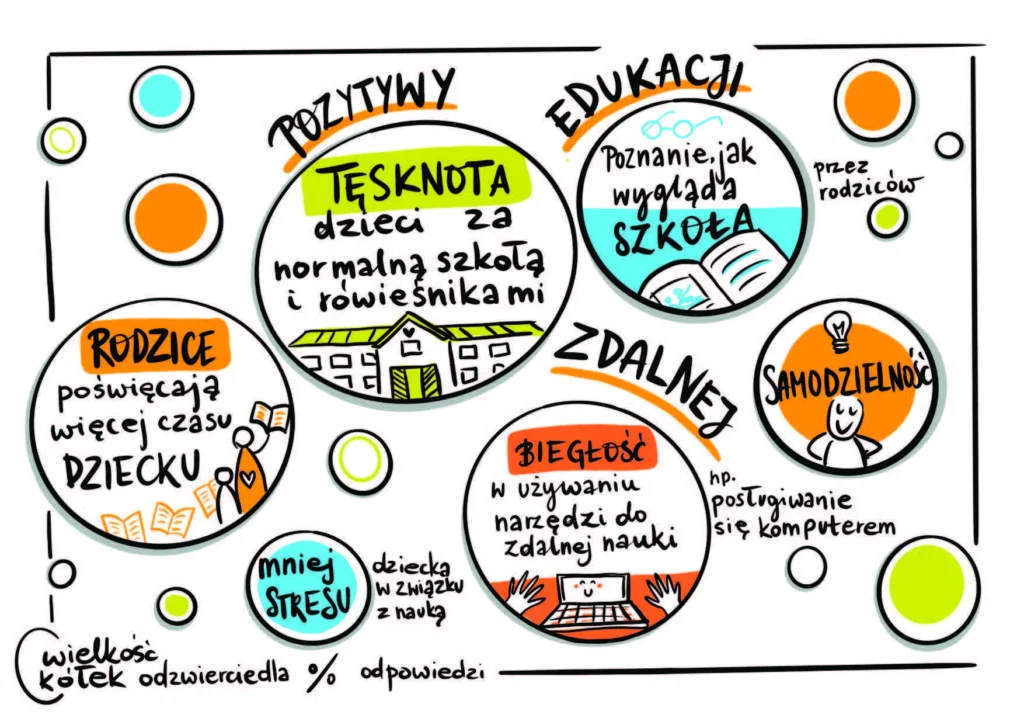 POZYTYWY
EDUKACJI
ZDALNEJ
TĘSKNOTA
dzieci za
normalną szkołą
i rówieśnikami
Poznanie, jak
wygląda
SZKOŁA
przez
rodziców
RODZICE
poświęcają
więcej czasu
DZIECKU
SAMODZIELNOŚĆ
BIEGŁOŚĆ
w używaniu
narzędzi do
zdalnej nauki
np.
posługiwanie
się komputerem
mniej
STRESU
dziecka
w związku
z nauką
wielkość
kółek odzwierciedla % odpowiedzi